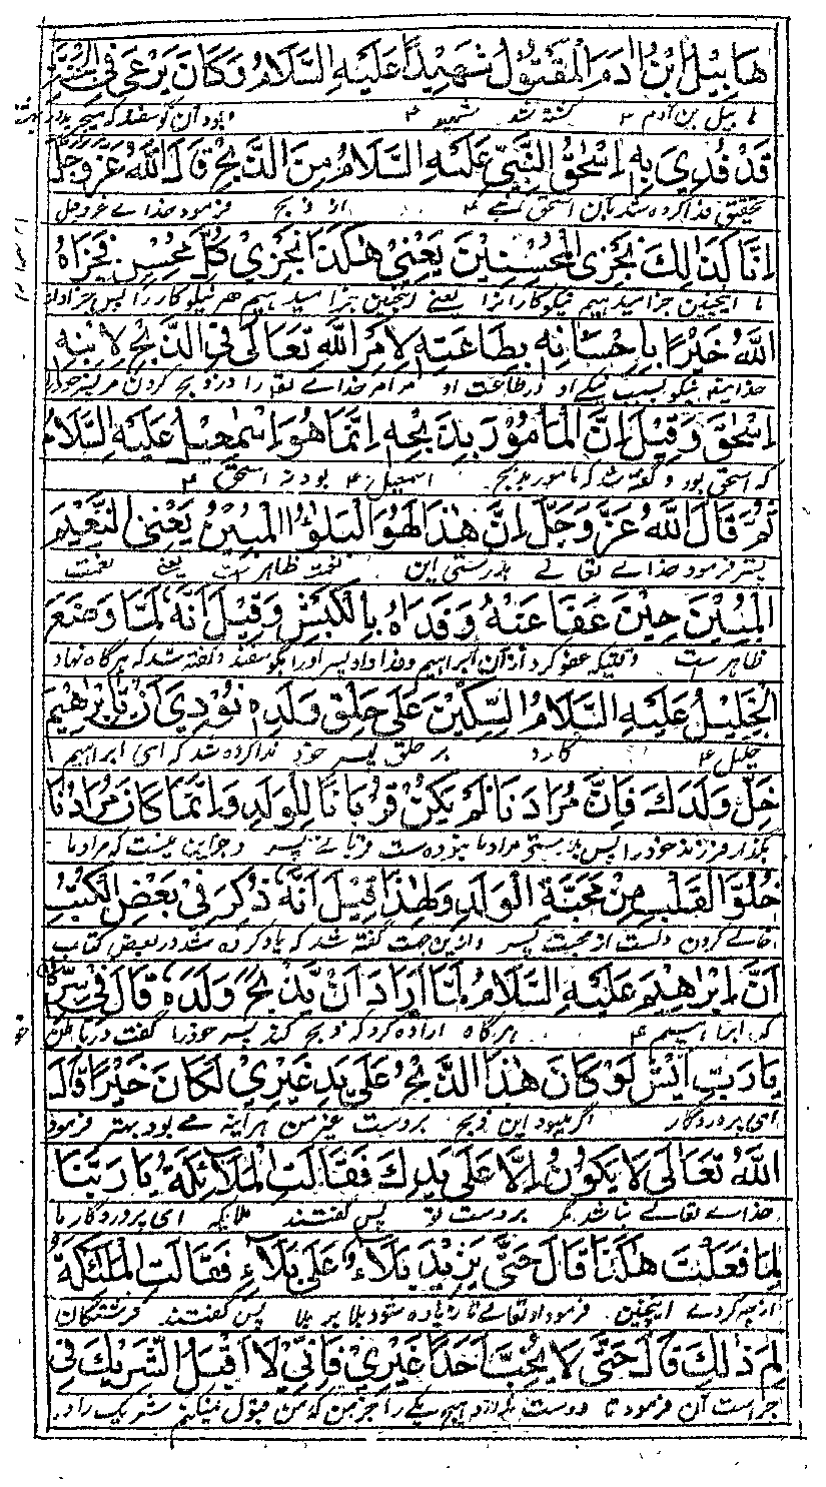 هَابِيْلُ ابْنُ اٰدَمَ الْمَقْتُوْلُ شَهِيْدًا عَلَيْهِ السَّلَامُ وَكَانَ يَرْعٰى فِى
هابيل بن آدم ۴ كشته شد شهيد ۴ و بود آن گوسفند كه ميچريد در
قَدْ فُدِيَ بِهٖ اِسْحٰقُ النَّبِيُّ عَلَيْهِ السَّلَامُ مِنَ الذَّبْحِ قَالَ اللّٰهُ عَزَّ وَجَلَّ
تحقيق فدا كرده شد بآن اسحق نبى ۴ از ذبح فرمود خداے عز و جل
اِنَّا كَذَالِكَ نَجْزِى الْمُحْسِنِيْنَ يَعْنِيْ هٰكَذَا نَجْزِيْ كُلَّ مُحْسِنٍ فَجَزَاهُ
ما اينچنين جزا ميدهيم نيكوكاران را يعنے اينچنين جزا ميدهيم هر نيكوكار را پس جزا داد
اللّٰهُ خَيْرًا بِاِحْسَانِهٖ بِطَاعَتِهٖ لِاَمْرِ اللّٰهِ تَعَالٰى فِى الذَّبْحِ لِابْنِهٖ
نيكو بسبب نيكے او از طاعت او مر امر خداے تعا را در ذبح كردن مر پسر خود
اِسْحٰقَ وَقِيْلَ اِنَّ الْمَأْمُوْرَ بِذَبْحِهٖ اِنَّمَا هُوَ اِسْمٰعِيْلُ عَلَيْهِ السَّلَامُ
كه اسحق بود و گفته شد كه مامور بذبح اسمعيل ۴ بود نه اسحق ۴
ثُمَّ قَالَ اللّٰهُ عَزَّ وَجَلَّ اِنَّ هٰذَا لَهُوَ الْبَلٰؤُا الْمُبِيْنُ يَعْنِى النَّعِيْمَ
پستر فرمود خداے تعالے بدرستى اين نعمت ظاهر است يعنے نعمت
الْمُبِيْنَ حِيْنَ عَفَا عَنْهُ وَفَدَاهُ بِالْكَبْشِ وَقِيْلَ اَنَّهٗ لَمَّا وَضَعَ
ظاهر است وقتيكه عفو كرد از آن ابراهيم و فدا داد پسر او را بگوسفند و گفته شد كه هرگاه نهاد
الْخَلِيْلُ عَلَيْهِ السَّلَامُ السِّكِّيْنَ عَلٰى حَلْقِ وَلَدِهٖ نُوْدِيَ اَنْ يَّا اِبْرٰهِيْمُ
خليل ۴ كارد بر حلق پسر خود ندا كرده شد كه اى ابراهيم
خَلِّ وَلَدَكَ فَاِنَّ مُرَادَنَا لَمْ يَكُنْ قُرْبَانًا لِلْوَلَدِ وَاِنَّمَا كَانَ مُرَادُنَا
بگذار فرزند خود را پس بدرستى مراد ما نبوده ست قربانے پسر و جز اين نيست كه مراد ما
خُلُوَّ الْقَلْبِ مِنْ مَحَبَّةِ الْوَلَدِ وَلِهٰذَا قِيْلَ اَنَّهٗ ذُكِرَ فِيْ بَعْضِ الْكُتُبِ
خالے كردن دلست از محبت پسر و ازين جهت گفته شد كه ياد كرده شد در بعض كتاب
اَنَّ اِبْرٰهِيْمَ عَلَيْهِ السَّلَامُ لَمَّا اَرَادَ اَنْ يَّذْبَحَ وَلَدَهٗ قَالَ فِيْ سِرِّهٖ
كه ابراهيم ۴ هرگاه اراده كرد كه ذبح كند پسر خود را گفت در باطن
يَا رَبِّ اَيْشٍ لَوْ كَانَ هٰذَا الذَّبْحُ عَلٰى يَدِ غَيْرِيْ لَكَانَ خَيْرًا قَالَ
اى پروردگار اگر ميبود اين ذبح بر دست غير من هر آينه مے بود بهتر فرمود
اللّٰهُ تَعَالٰى لَا يَكُوْنُ اِلَّا عَلٰى يَدِكَ فَقَالَتِ الْمَلَآئِكَةُ يَا رَبَّنَا
خداے تعالے نباشد مگر بر دست تو پس گفتند ملائكه اى پروردگار ما
لِمَا فَعَلْتَ هٰكَذَا قَالَ حَتّٰى يَزِيْدَ بَلَآءً عَلٰى بَلَآءٍ فَقَالَتِ الْمَلٰئِكَةُ
از چه كردے اينچنين فرمود او تعالے تا زياده شود بلا بر بلا پس گفتند فرشتگان
لِمَ ذٰلِكَ قَالَ حَتّٰى لَا يُحِبَّ اَحَدًا غَيْرِيْ فَاِنِّيْ لَا اَقْبَلُ الشَّرِيْكَ فِى
چراست آن فرمود تا دوست ندارد هيچ يكے را جز من كه من قبول نميكنم شريك را در